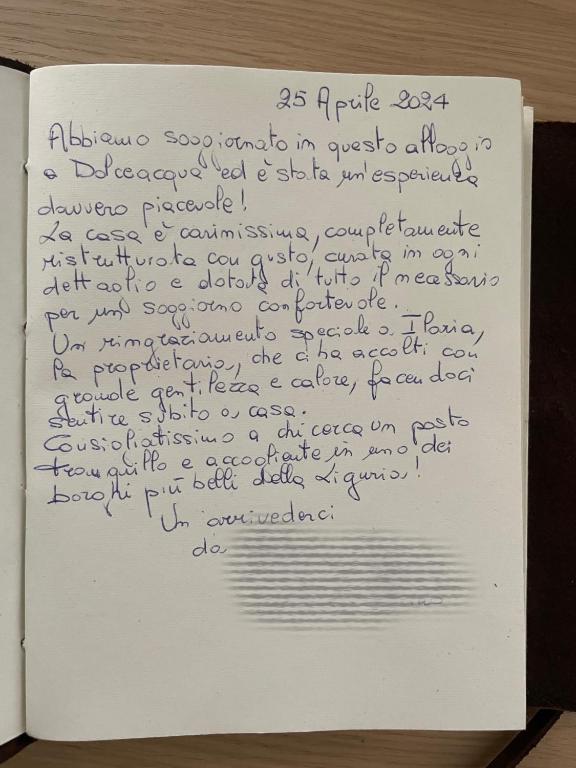 25 Aprile 2024
Abbiamo soggiornato in questo alloggio
a Dolceacqua ed è stata un'esperienza
davvero piacevole!
La casa è carinissima, completamente
ristrutturata con gusto, curata in ogni
dettaglio e dotata di tutto il necessario
per un soggiorno confortevole.
Un ringraziamento speciale a Ilaria,
la proprietaria, che ci ha accolti con
grande gentilezza e calore, facendoci
sentire subito a casa.
Consigliatissimo a chi cerca un posto
tranquillo e accogliente in uno dei
borghi più belli della Liguria!
Un arrivederci
da